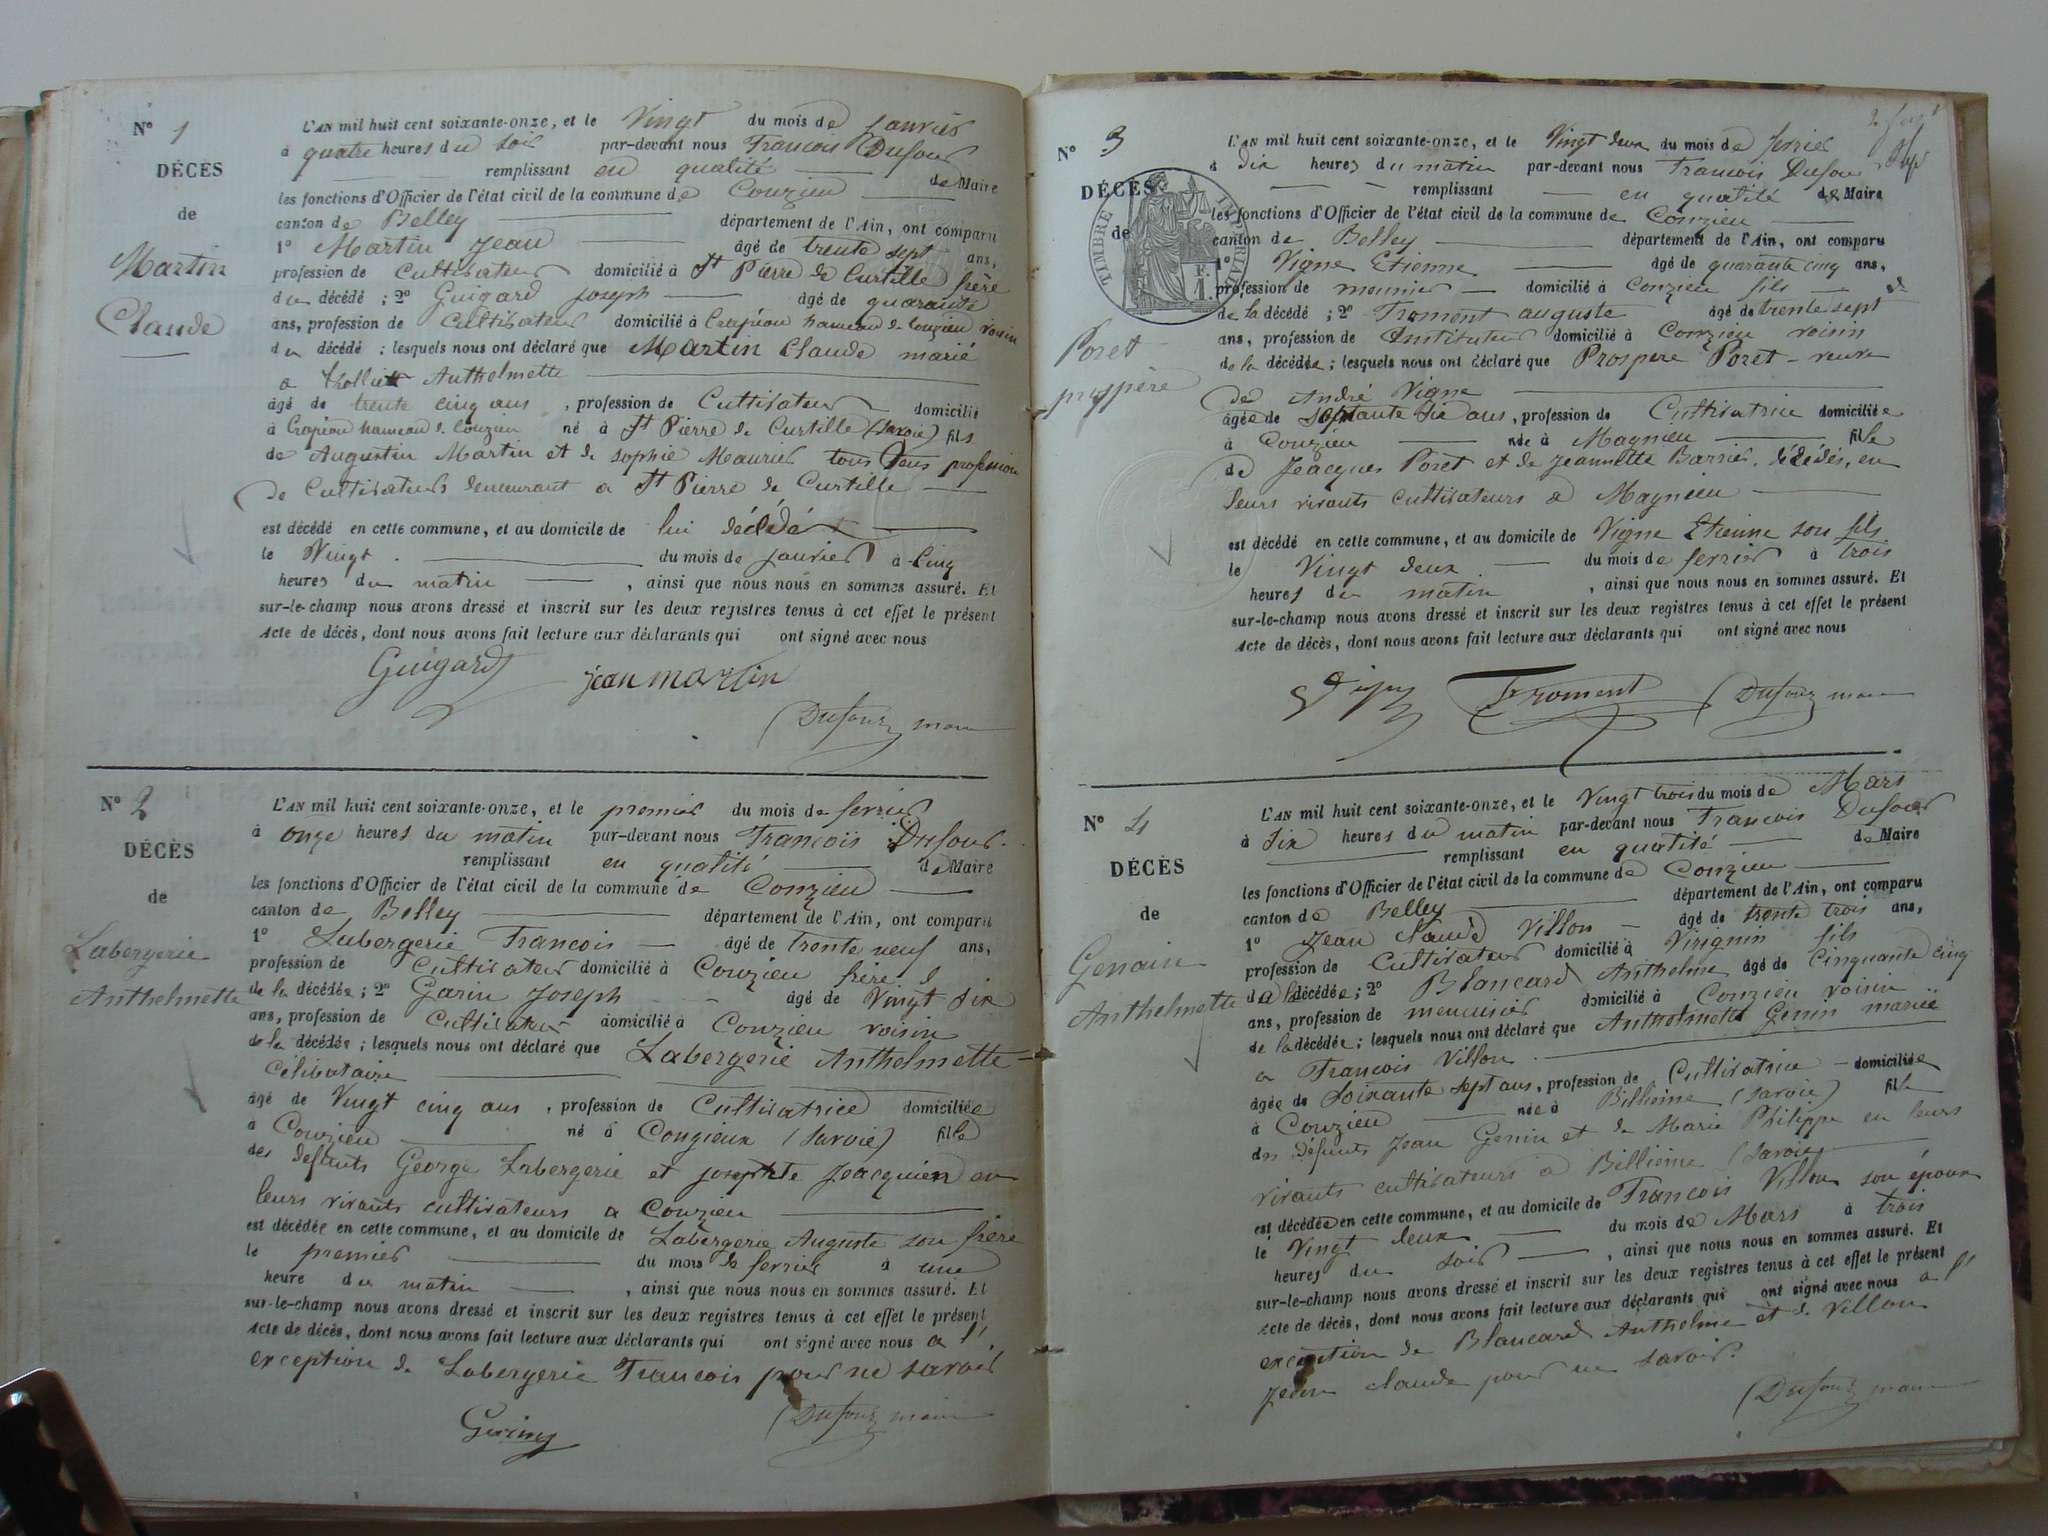 N° 1
DÉCÈS
de
Martin
Claude
L'AN mil huit cent soixante-onze, et le Vingt du mois de janvier
à quatre heures du soir par-devant nous François Dufour
remplissant en qualité de Maire
les fonctions d'Officier de l'état civil de la commune de Conzieu
canton de Belley département de l'Ain, ont comparu
1° Martin Jean âgé de trente sept ans,
profession de Cultivateur domicilié à St Pierre de Curtille frère
du décédé ; 2° Guigard Joseph âgé de quarante
ans, profession de Cultivateur domicilié à Crapéou hameau de Conzieu voisin
du décédé ; lesquels nous ont déclaré que Martin Claude marié
a Anthelmette
âgé de trente cinq ans, profession de Cultivateur domicilié
à Crapéou hameau de Conzieu né à St Pierre de Curtille (Savoie) fils
de Augustin Martin et de Sophie Maurier tous deux profession
de Cultivateurs demeurant a St Pierre de Curtille
est décédé en cette commune, et au domicile de lui décédé
le Vingt du mois de janvier à Cinq
heures du matin, ainsi que nous nous en sommes assuré. Et
sur-le-champ nous avons dressé et inscrit sur les deux registres tenus à cet effet le présent
Acte de décès, dont nous avons fait lecture aux déclarants qui ont signé avec nous
Guigard jean martin
Dufour maire
N° 2
DÉCÈS
de
Labergerie
Anthelmette
L'AN mil huit cent soixante-onze, et le premier du mois de fevrier
à onze heures du matin par-devant nous François Dufour
remplissant en qualité de Maire
les fonctions d'Officier de l'état civil de la commune de Conzieu
canton de Belley département de l'Ain, ont comparu
1° Labergerie François âgé de trente neuf ans,
profession de Cultivateur domicilié à Conzieu frère
de la décédée ; 2° Garin Joseph âgé de Vingt six
ans, profession de Cultivateur domicilié à Conzieu voisin
de la décédée ; lesquels nous ont déclaré que Labergerie Anthelmette
célibataire
âgé de Vingt cinq ans, profession de Cultivatrice domiciliée
à Conzieu né à Congieux (Savoie) fille
des defunts George Labergerie et josephte Jeacquier en
leurs vivants cultivateurs a Conzieu
est décédée en cette commune, et au domicile de Labergerie Auguste son frère
le premier du mois de fevrier à une
heure du matin, ainsi que nous nous en sommes assuré. Et
sur-le-champ nous avons dressé et inscrit sur les deux registres tenus à cet effet le présent
Acte de décès, dont nous avons fait lecture aux déclarants qui ont signé avec nous a l'
exception de Labergerie François pour ne savoir
Dufour maire
N° 3
DÉCÈS
de
TIMBRE IMPERIAL
F. 1.
Poret
prospère
L'AN mil huit cent soixante-onze, et le Vingt deux du mois de fevrier
à dix heures du matin par-devant nous François Dufour
remplissant en qualité de Maire
les fonctions d'Officier de l'état civil de la commune de Conzieu
canton de Belley département de l'Ain, ont comparu
1° Vigne Etienne âgé de quarante cinq ans,
profession de meunier domicilié à Conzieu fils de
de la décédé ; 2° Froment auguste âgé de trente sept
ans, profession de Instituteur domicilié à Conzieu voisin
de la décédée ; lesquels nous ont déclaré que Prospere Poret veuve
de André Vigne
âgée de soptante six ans, profession de Cultivatrice domiciliée
à Conzieu née à Magnieu fille
de Jeacques Poret et de Jeannette Barrier, décédés, en
leurs vivants cultivateurs a Magnieu
est décédé en cette commune, et au domicile de Vigne Etienne son fils
le Vingt deux du mois de fevrier à trois
heures du matin, ainsi que nous nous en sommes assuré. Et
sur-le-champ nous avons dressé et inscrit sur les deux registres tenus à cet effet le présent
Acte de décès, dont nous avons fait lecture aux déclarants qui ont signé avec nous
Froment Dufour maire
N° 4
DÉCÈS
de
Genain
Anthelmette
L'AN mil huit cent soixante-onze, et le Vingt trois du mois de Mars
à dix heures du matin par-devant nous François Dufour
remplissant en qualité de Maire
les fonctions d'Officier de l'état civil de la commune de Conzieu
canton de Belley département de l'Ain, ont comparu
1° Jean Claude Villon âgé de trente trois ans,
profession de Cultivateur domicilié à Virignin fils
de la décédée ; 2° Blancard Anthelme âgé de Cinquante cinq
ans, profession de menuisier domicilié à Conzieu voisin
de la décédée ; lesquels nous ont déclaré que Anthelmette Genin mariée
a François Villon
âgée de Soixante sept ans, profession de Cultivatrice domiciliée
à Conzieu née à Billieme (Savoie) fille
des défunts Jean Genin et de Marie Philippe en leurs
vivants cultivateurs a Billieme (Savoie
est décédée en cette commune, et au domicile de François Villon son époux
le Vingt deux du mois de Mars à trois
heures du soir, ainsi que nous nous en sommes assuré. Et
sur-le-champ nous avons dressé et inscrit sur les deux registres tenus à cet effet le présent
Acte de décès, dont nous avons fait lecture aux déclarants qui ont signé avec nous a l'
exception de Blancard Anthelme et de Villon
Jean claude pour ne savoir.
Dufour maire